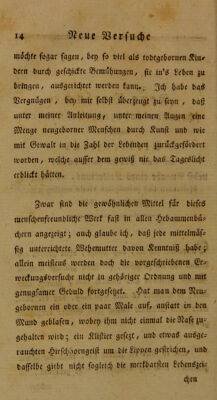 14 Neue Versuche
möchte sogar sagen, bey so viel als todtgebornen Kin-
dern durch geschickte Bemühungen, sie in's Leben zu
bringen, ausgerichtet werden kann. Ich habe das
Vergnügen, bey mir selbst überzeugt zu seyn, daß
unter meiner Anleitung, unter meinen Augen eine
Menge neugeborner Menschen durch Kunst und wie
mit Gewalt in die Zahl der Lebenden zurückgefördert
worden, welche ausser dem gewiß nie das Tageslicht
erblickt hätten.
Zwar sind die gewöhnlichen Mittel für dieses
menschenfreundliche Werk fast in allen Hebammenbü-
chern angezeigt; auch glaube ich, daß jede mittelmäs-
sig unterrichtete Wehemutter davon Kenntniß habe;
allein meistens werden doch die vorgeschriebenen Er-
weckungsversuche nicht in gehöriger Ordnung und mit
genugsamer Geduld fortgesetzt. Hat man dem Neu-
gebornen ein oder ein paar Male auf, anstatt in den
Mund geblasen, wobey ihm nicht einmal die Nase zu-
gehalten wird; ein Klistier gesezt, und etwas ausge-
rauchten Hirschhorngeist um die Lippen gestrichen, und
dasselbe giebt nicht sogleich die merkbarsten Lebenszei-
chen